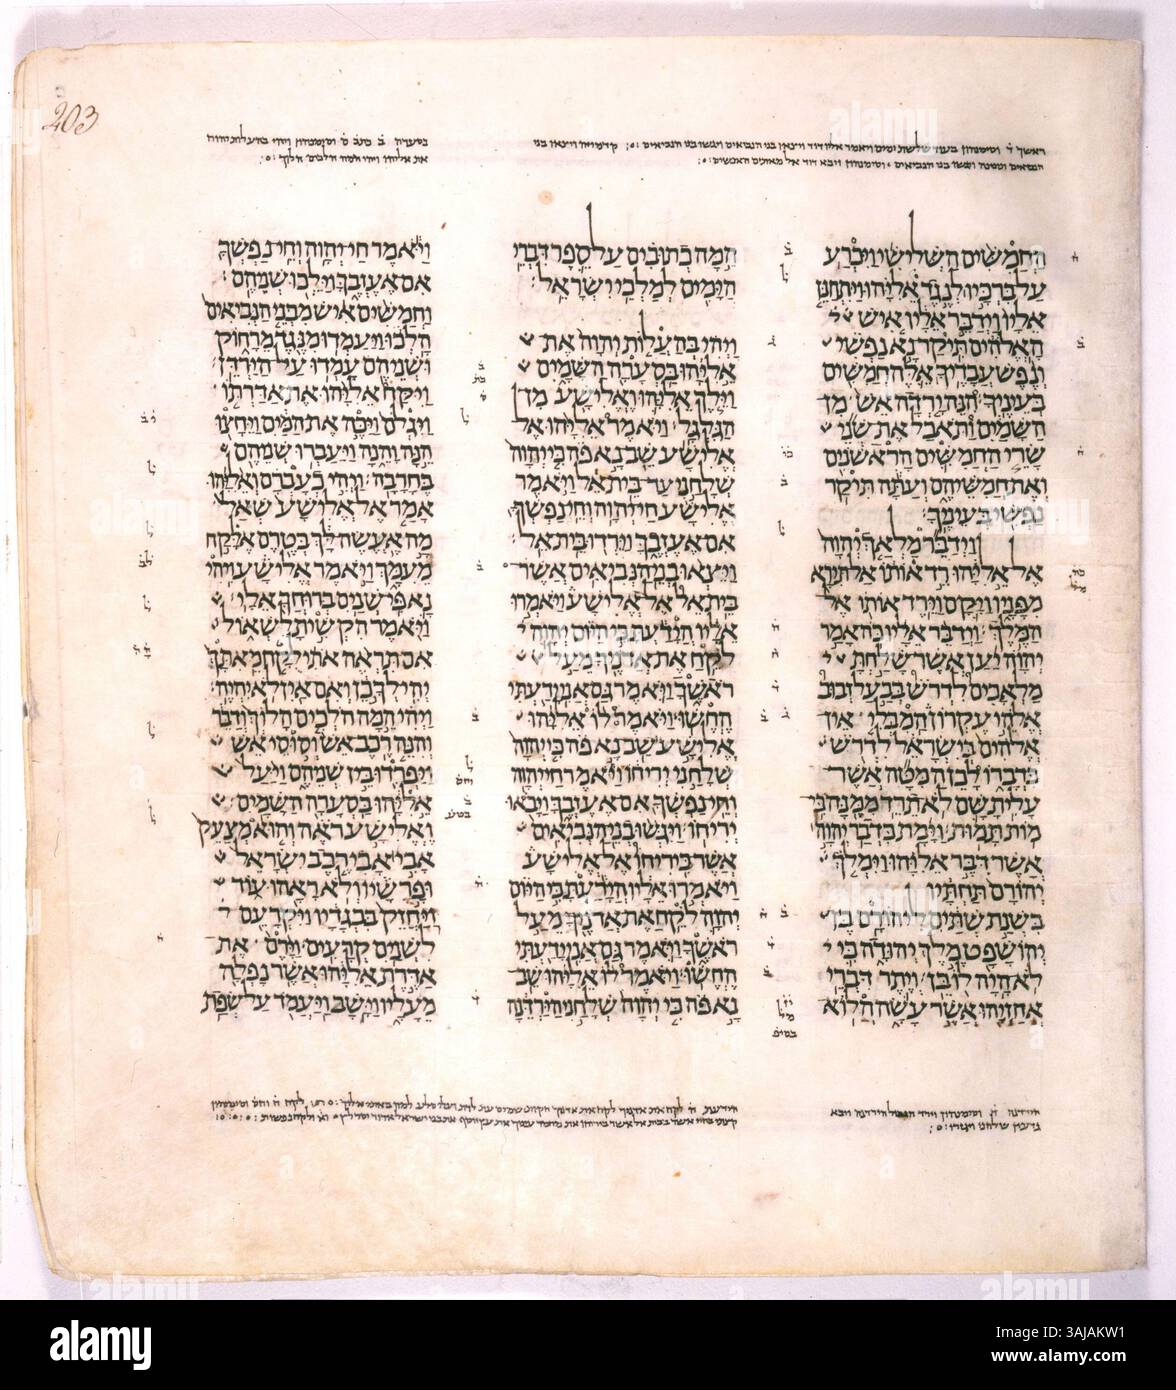 203
החמשים השלישי ויכרע
על ברכיו לנגד אליהו ויתחנן
אליו וידבר אליו איש
האלהים תיקר נא נפשי
ונפש עבדיך אלה חמשים
בעיניך הנה ירדה אש מן
השמים ותאכל את שני
שרי החמשים הראשנים
ואת חמשיהם ועתה תיקר
נפשי בעיניך׃
וידבר מלאך יהוה
אל אליהו רד אותו אל תירא
מפניו ויקם וירד אותו אל
המלך׃ וידבר אליו כה אמר
יהוה יען אשר שלחת
מלאכים לדרש בבעל זבוב
אלהי עקרון המבלי אין
אלהים בישראל לדרש
בדברו לכן המטה אשר
עלית שם לא תרד ממנה כי
מות תמות׃ וימת כדבר יהוה
אשר דבר אליהו וימלך
יהורם תחתיו
בשנת שתים ליהורם בן
יהושפט מלך יהודה כי
לא היה לו בן׃ ויתר דברי
אחזיהו אשר עשה הלוא
המה כתובים על ספר דברי
הימים למלכי ישראל׃
ויהי בהעלות יהוה את
אליהו בסערה השמים
וילך אליהו ואלישע מן
הגלגל׃ ויאמר אליהו אל
אלישע שב נא פה כי יהוה
שלחני עד בית אל ויאמר
אלישע חי יהוה וחי נפשך
אם אעזבך וירדו בית אל׃
ויצאו בני הנביאים אשר
בית אל אל אלישע ויאמרו
אליו הידעת כי היום יהוה
לקח את אדניך מעל
ראשך ויאמר גם אני ידעתי
החשו׃ ויאמר לו אליהו
אלישע שב נא פה כי יהוה
שלחני יריחו ויאמר חי יהוה
וחי נפשך אם אעזבך ויבאו
יריחו׃ ויגשו בני הנביאים
אשר ביריחו אל אלישע
ויאמרו אליו הידעת כי היום
יהוה לקח את אדניך מעל
ראשך ויאמר גם אני ידעתי
החשו׃ ויאמר לו אליהו שב
נא פה כי יהוה שלחני הירדנה
ויאמר חי יהוה וחי נפשך
אם אעזבך וילכו שניהם׃
וחמשים איש מבני הנביאים
הלכו ויעמדו מנגד מרחוק
ושניהם עמדו על הירדן׃
ויקח אליהו את אדרתו
ויגלם ויכה את המים ויחצו
הנה והנה ויעברו שניהם
בחרבה׃ ויהי כעברם ואליהו
אמר אל אלישע שאל
מה אעשה לך בטרם אלקח
מעמך ויאמר אלישע ויהי
נא פי שנים ברוחך אלי׃
ויאמר הקשית לשאול
אם תראה אתי לקח מאתך
יהי לך כן ואם אין לא יהיה׃
ויהי המה הלכים הלוך ודבר
והנה רכב אש וסוסי אש
ויפרדו בין שניהם ויעל
אליהו בסערה השמים׃
ואלישע ראה והוא מצעק
אבי אבי רכב ישראל
ופרשיו ולא ראהו עוד
ויחזק בבגדיו ויקרעם
לשנים קרעים׃ וירם את
אדרת אליהו אשר נפלה
מעליו וישב ויעמד על שפת
alamy
Image ID: 3AJAKW1
www.alamy.com